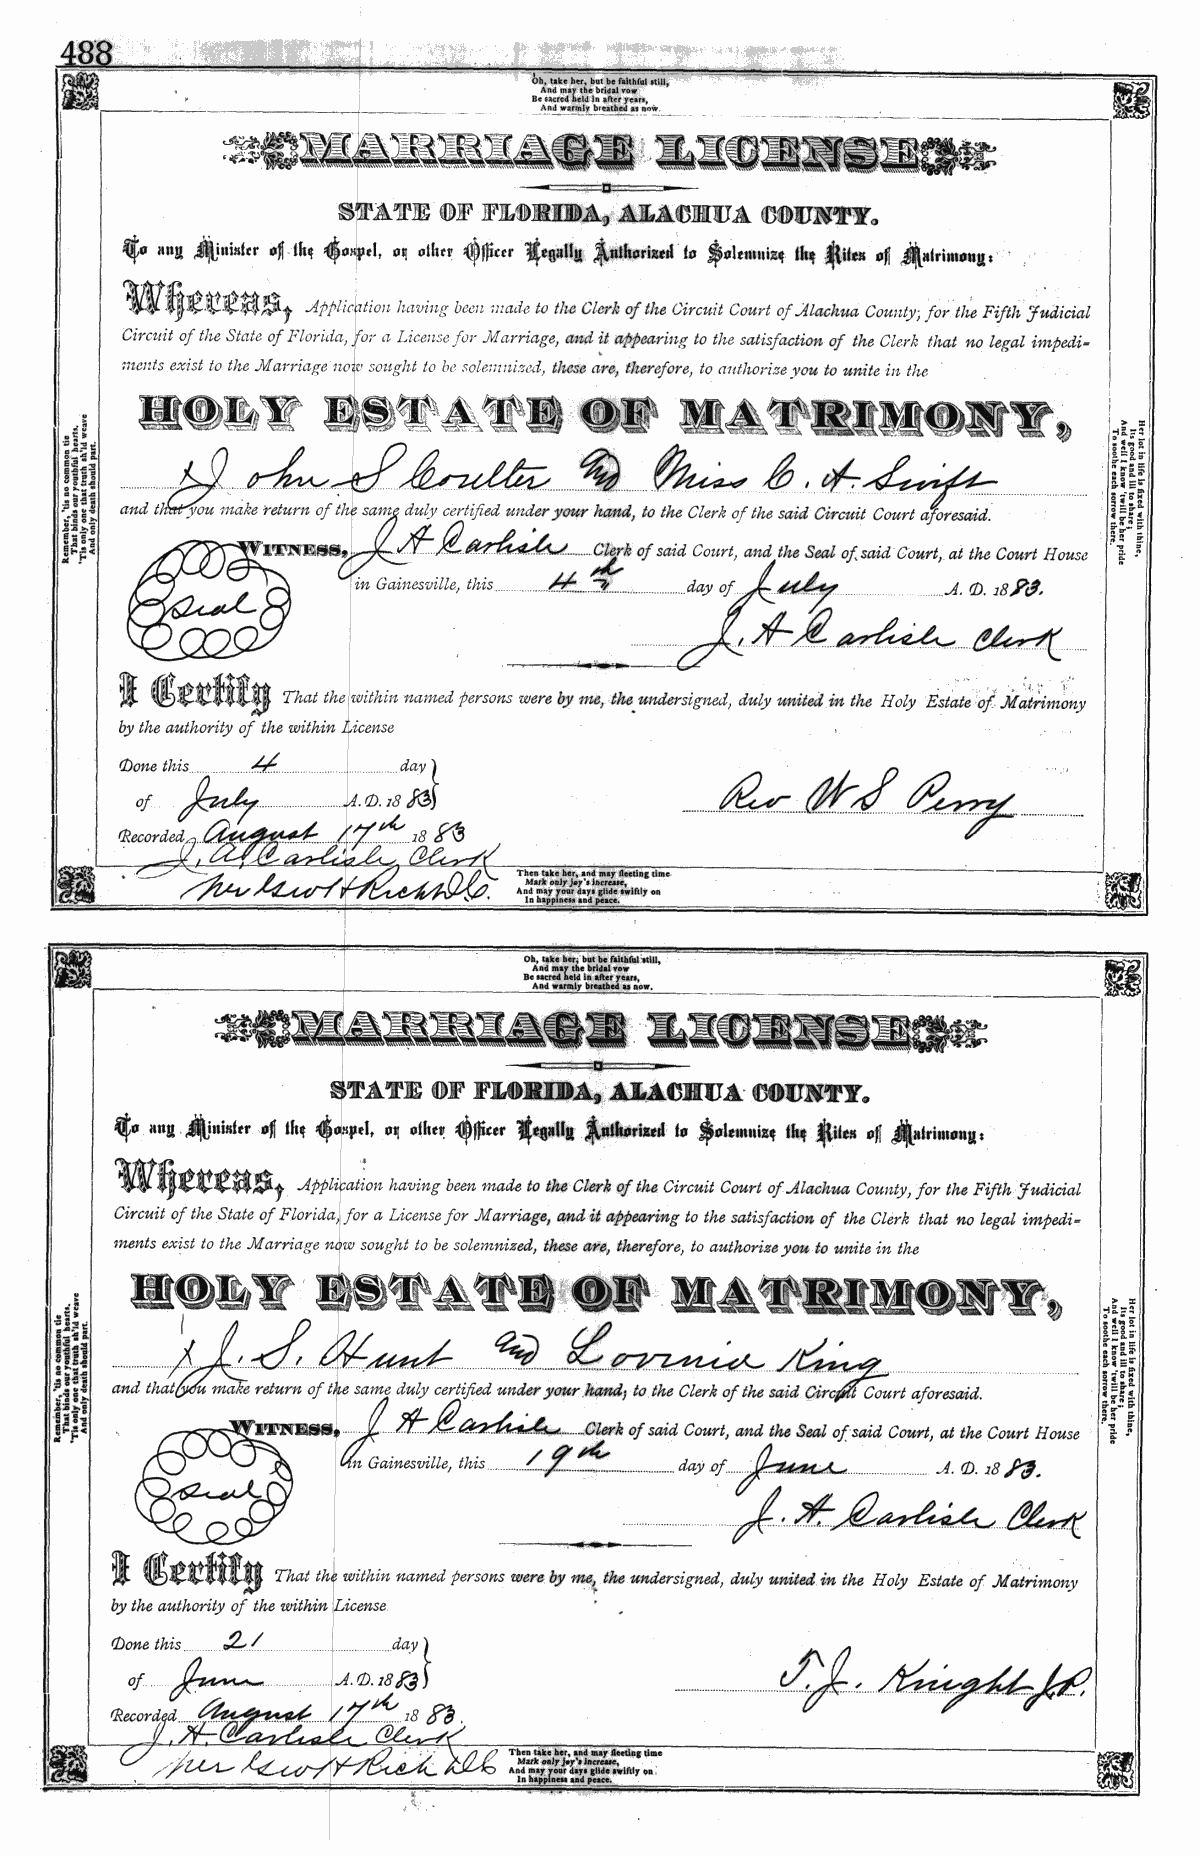 488
Oh, take her, but be faithful still,
And may the bridal vow
Be sacred held in after years,
And warmly breathed as now.
MARRIAGE LICENSE
STATE OF FLORIDA, ALACHUA COUNTY.
To any Minister of the Gospel, or other Officer Legally Authorized to Solemnize the Rites of Matrimony:
Whereas, Application having been made to the Clerk of the Circuit Court of Alachua County, for the Fifth Judicial
Circuit of the State of Florida, for a License for Marriage, and it appearing to the satisfaction of the Clerk that no legal impedi-
ments exist to the Marriage now sought to be solemnized, these are, therefore, to authorize you to unite in the
HOLY ESTATE OF MATRIMONY,
John S Coulter and Miss C. A. Swift
and that you make return of the same duly certified under your hand, to the Clerk of the said Circuit Court aforesaid.
WITNESS, J A Carlisle Clerk of said Court, and the Seal of said Court, at the Court House
Seal
in Gainesville, this 4th day of July A. D. 1883.
J. A Carlisle Clerk
I Certify That the within named persons were by me, the undersigned, duly united in the Holy Estate of Matrimony
by the authority of the within License
Done this 4 day
of July A. D. 1883
Rev W S Perry
Recorded August 17th 1883
J. A. Carlisle Clerk
per Geo H Rich D.C.
Remember, 'tis no common tie
That binds our youthful hearts,
'Tis only one that truth sh'ld weave
And only death should part.
Her lot in life is fixed with thine,
Its good and ill to share;
And well I know 'twill be her pride
To soothe each sorrow there.
Then take her, and may fleeting time
Mark only joy's increase,
And may your days glide swiftly on
In happiness and peace.
Oh, take her, but be faithful still,
And may the bridal vow
Be sacred held in after years,
And warmly breathed as now.
MARRIAGE LICENSE
STATE OF FLORIDA, ALACHUA COUNTY.
To any Minister of the Gospel, or other Officer Legally Authorized to Solemnize the Rites of Matrimony:
Whereas, Application having been made to the Clerk of the Circuit Court of Alachua County, for the Fifth Judicial
Circuit of the State of Florida, for a License for Marriage, and it appearing to the satisfaction of the Clerk that no legal impedi-
ments exist to the Marriage now sought to be solemnized, these are, therefore, to authorize you to unite in the
HOLY ESTATE OF MATRIMONY,
J. S. Hunt and Lovinia King
and that you make return of the same duly certified under your hand, to the Clerk of the said Circuit Court aforesaid.
WITNESS, J A Carlisle Clerk of said Court, and the Seal of said Court, at the Court House
Seal
in Gainesville, this 19th day of June A. D. 1883.
J. A. Carlisle Clerk
I Certify That the within named persons were by me, the undersigned, duly united in the Holy Estate of Matrimony
by the authority of the within License
Done this 21 day
of June A. D. 1883
T. J. Knight J.P.
Recorded August 17th 1883.
J. A. Carlisle Clerk
per Geo H Rich D C
Remember, 'tis no common tie
That binds our youthful hearts,
'Tis only one that truth sh'ld weave
And only death should part.
Her lot in life is fixed with thine,
Its good and ill to share;
And well I know 'twill be her pride
To soothe each sorrow there.
Then take her, and may fleeting time
Mark only joy's increase,
And may your days glide swiftly on
In happiness and peace.